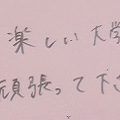 楽しい大学
頑張って下さ